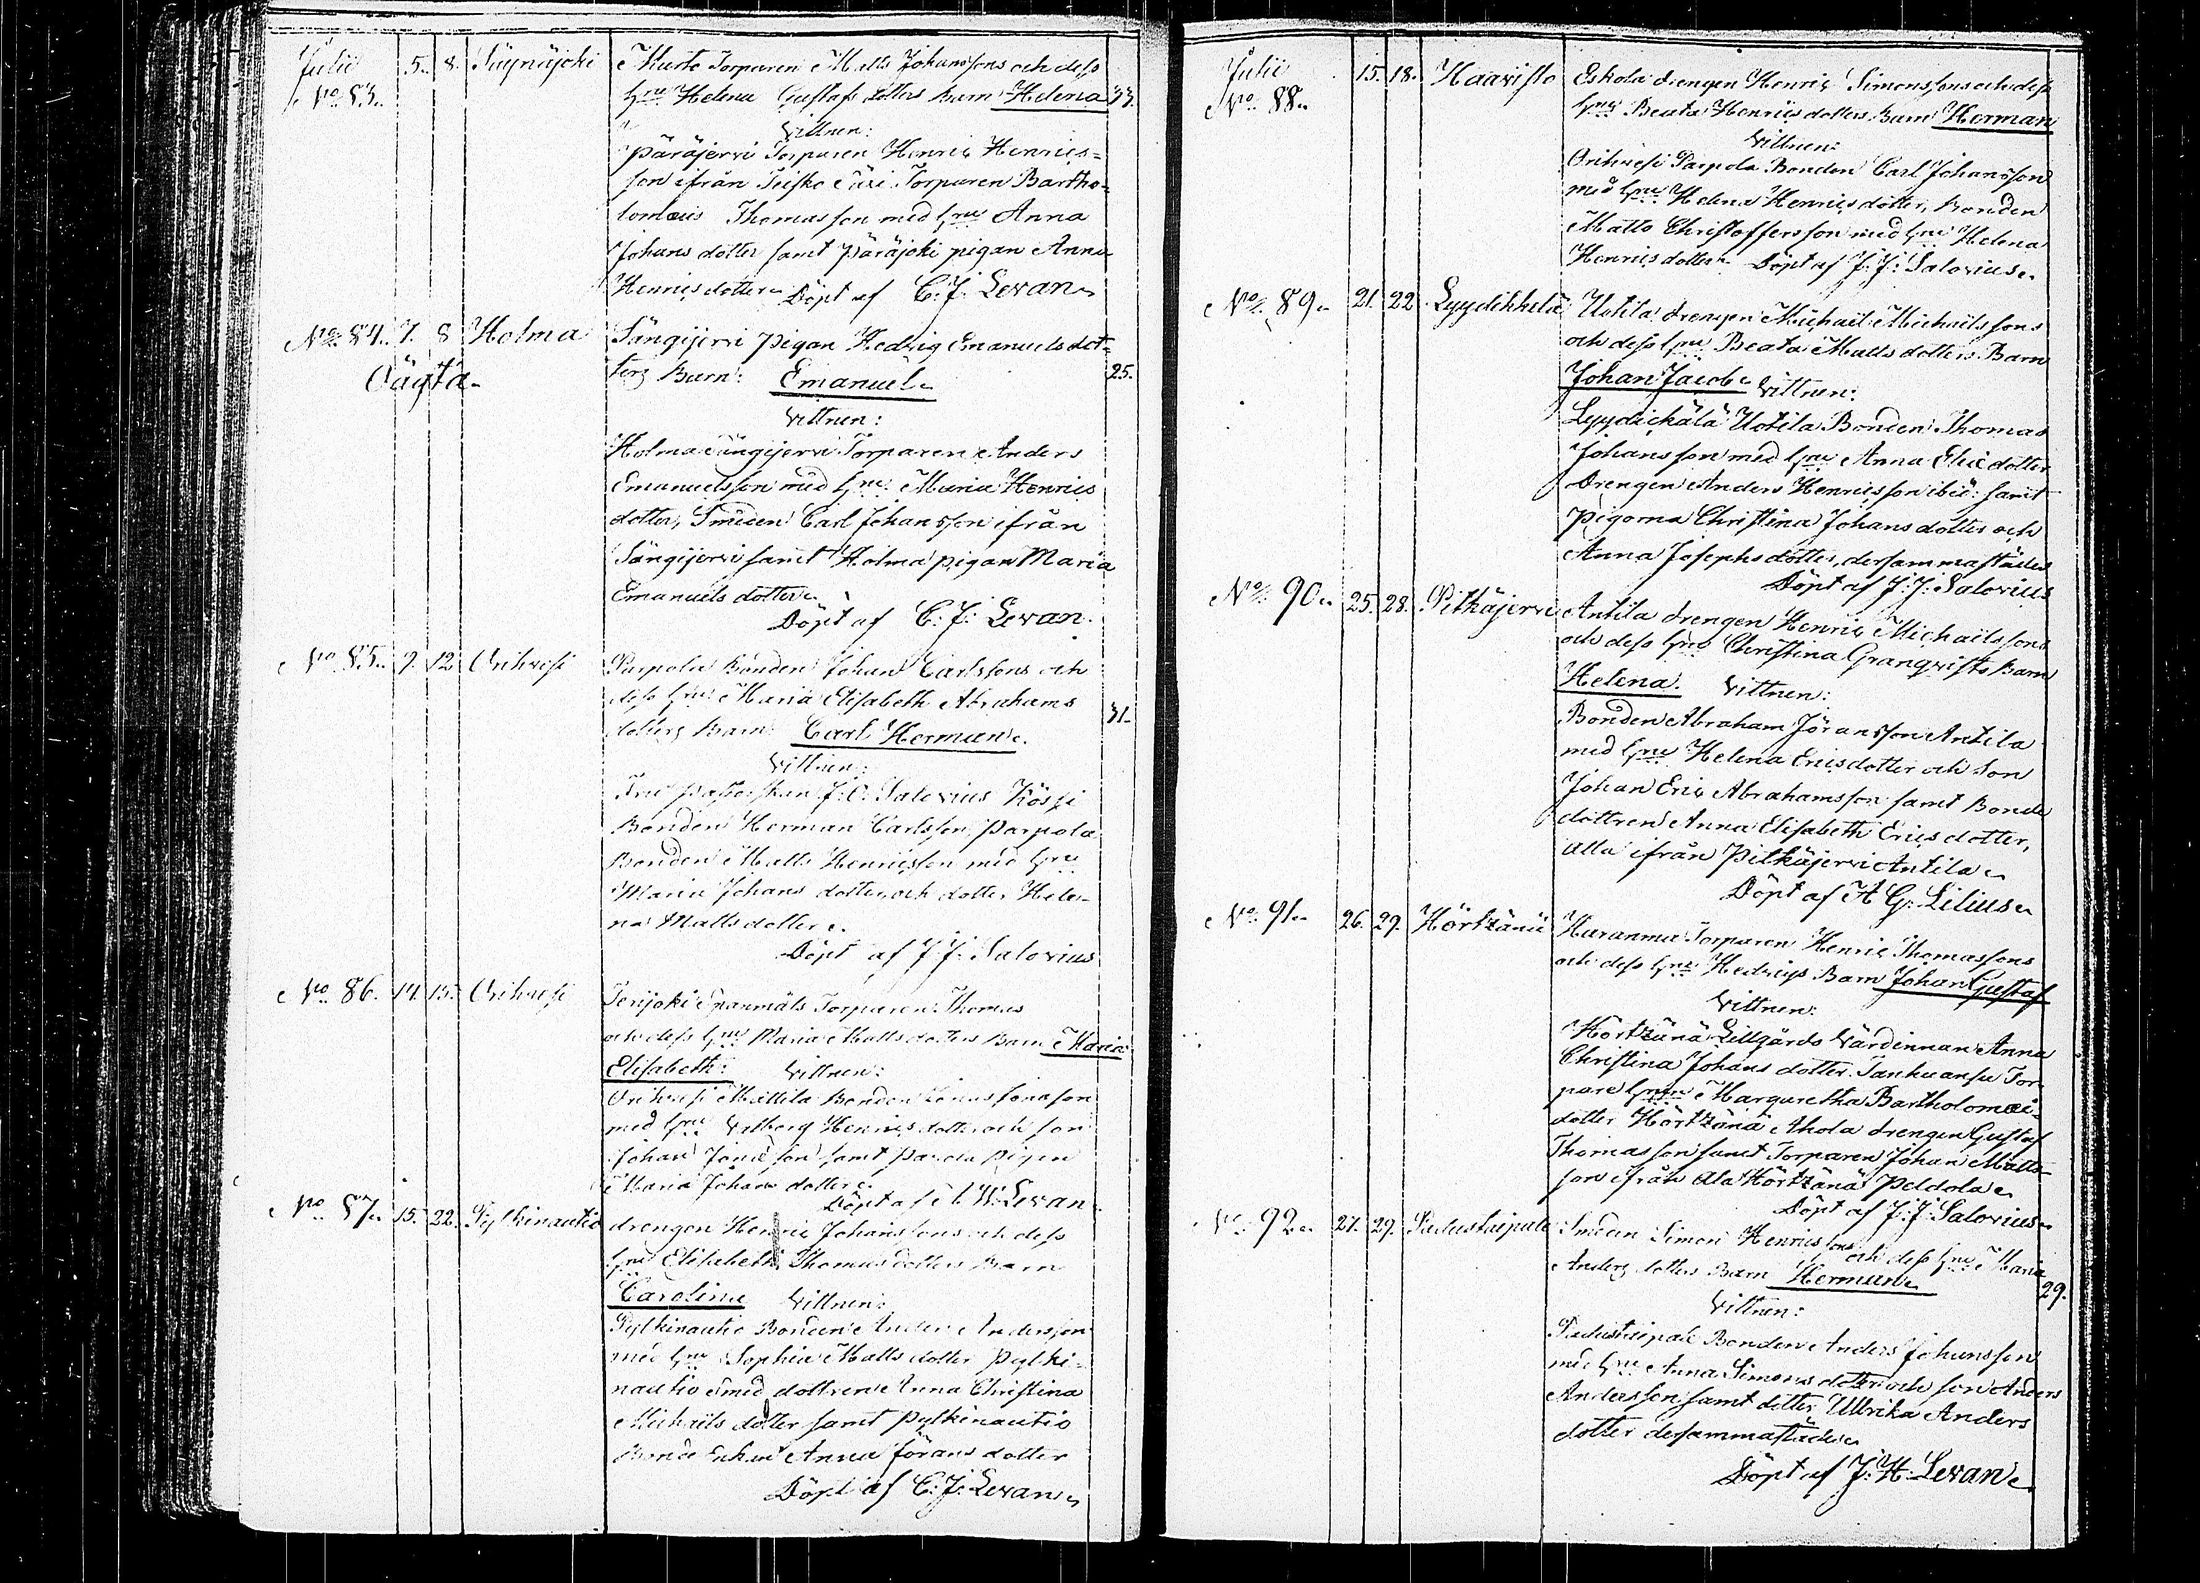 Julii 5. 8. Siynäjoki Murto Torparen Matts Johanssons och dess
No 83. Hru Helena Gustafs dotters Barn Helena 33.
Vittnen:
Päräjerwi Torparen Henric Henrics=
son ifrån Teisko Torparen Bartho=
lomæus Thomasson med Hru Anna
Johans dotter samt Päräjoki pigan Anna
Henrics dotter. Döpt af C: J: Levan.
No 84. 7. 8 Holma Sängijerwi Pigan Hedvig Emanuels dot=
Oägta. ters Barn: Emanuel. 25.
Vittnen:
Holma Sängijerwi Torparen Anders
Emanuelsson med Hru Maria Henrics
dotter, Smeden Carl Johansson ifrån
Sängijerwi samt Holma pigan Maria
Emanuels dotter.
Döpt af C: J: Levan.
No 85. 7. 12. Orihvesi Parpola Bonden Johan Carlssons och
dess Hru Maria Elisabeth Abrahams 31.
dotters Barn: Carl Herman.
Vittnen:
J: J: Salovius
Bonden Herman Carlsson, Parpola
Bonden Matts Henricsson med Hru
Maria Johans dotter, och dotter Hele-
na Matts dotter.
Döpt af J: J: Salovius
No 86. 14. 15. Orihvesi Torparen Thomas
och dess Hru Maria Matts dotters Barn Maria
Elisabeth: Vittnen:
Orihvesi Mattila Bonden Jonas Jonasson
med Hru Valborg Henrics dotter och son
Johan Jonasson samt pigan
Maria Johans dotter.
Döpt af Levan
No 87. 15. 22. Pylkinautio drengen Henric Johanssons och dess
Hru Elisabeth Thomas dotters Barn
Carolina Vittnen:
Pylkinautio Bonden Anders Andersson
med Hru Sophia Matts dotter Pylki=
nautio Smed dottren Anna Christina
Michaels dotter samt Pylkinautio
Bonde Enkan Anna Jörans dotter
Döpt af C: J: Levan.
Julii 15. 18. Haavisto Eskola drengen Henric Simonssons och dess
No 88. Hru Beata Henrics dotters Barn Herman
Vittnen:
Orihvesi Parpola Bonden Carl Johansson
med Hru Helena Henrics dotter, Bonden
Matts Christoffersson med Hru Helena
Henrics dotter. Döpt af J: J: Salovius.
No 89. 21. 22 Lyydikkälä Uotila drengen Michael Michaelssons
och dess Hru Beata Matts dotters Barn
Johan Jacob. Vittnen:
Lyydickälä Uotila Bonden Thomas
Johansson med Hru Anna Eric dotter
Drengen Anders Henricsson ibid: samt
Pigorna Christina Johans dotter och
Anna Josephs dotter, dersammastädes
Döpt af J: J: Salovius
No 90. 25. 28. Pitkäjerwi Antila drengen Henric Michaelssons
och dess Hru Christina Granqvists Barn
Helena. Vittnen:
Bonden Abraham Jöransson Antila
med Hru Helena Erics dotter och Son
Johan Eric Abrahamsson samt Bonde
dottren Anna Elisabeth Erics dotter,
alla ifrån Pitkäjerwi Antila.
Döpt af A G: Lilius.
No 91. 26. 29. Hörtzänä Haranma Torparen Henric Thomassons
och dess Hru Hedvigs Barn Johan Gustaf
Vittnen:
Hörtzänä Lillgårds Värdinnan Anna
Christina Johans dotter. Tor
pare Hrun Margaretha Bartholomæi
dotter Hörtzänä Ahola drengen Gustaf
Thomasson samt Torparen Johan Matts
son ifrån Ala Hörtzänä Peldola.
Döpt af J: J: Salovius.
No 92. 27. 29. Padustaipale Smeden Simon Henricssons och dess Hru Maria
Anders dotters Barn Herman. 29.
Vittnen:
Padustaipale Bonden Anders Johansson
med Hru Anna Simons dotter och son Anders
Andersson samt dotter Ulbrika Anders
dotter dersammastädes.
Döpt af J: H: Levan.